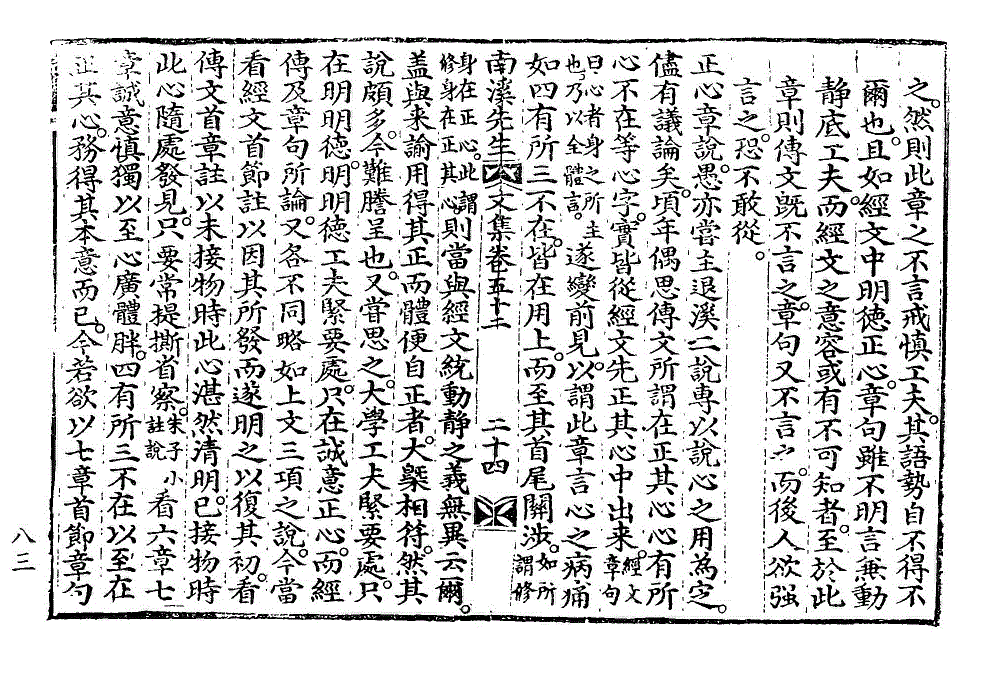 之。然則此章之不言戒慎工夫。其語勢自不得不
爾也。且如經文中明德正心。章句雖不明言兼動
靜底工夫。而經文之意容或有不可知者。至於此
章則傳文旣不言之。章句又不言之。而後人欲强
言之。恐不敢從。
正心章說。愚亦嘗主退溪二說專以說心之用爲定。
儘有議論矣。頃年偶思傳文所謂在正其心心有所
心不在等心字。實皆從經文先正其心中出來。經文章句
曰心者身之所主也。乃以全體言。遂變前見。以謂此章言心之病痛
如四有所三不在。皆在用上。而至其首尾關涉。如所謂修
身在正心。此謂修身在正其心。則當與經文統動靜之義無異云爾。
蓋與來諭用得其正而體便自正者。大槩相符。然其
說頗多。今難謄呈也。又嘗思之。大學工夫緊要處。只
在明明德。明明德工夫緊要處。只在誠意正心。而經
傳及章句所論。又各不同略如上文三項之說。今當
看經文首節註以因其所發而遂明之以復其初。看
傳文首章註以未接物時此心湛然淸明。已接物時
此心隨處發見。只要常提撕省察。朱子小註說 看六章七
章誠意愼獨以至心廣體胖。四有所三不在以至在
正其心。務得其本意而已。今若欲以七章首節章句
南溪先生文集卷五十二
二十四
八三